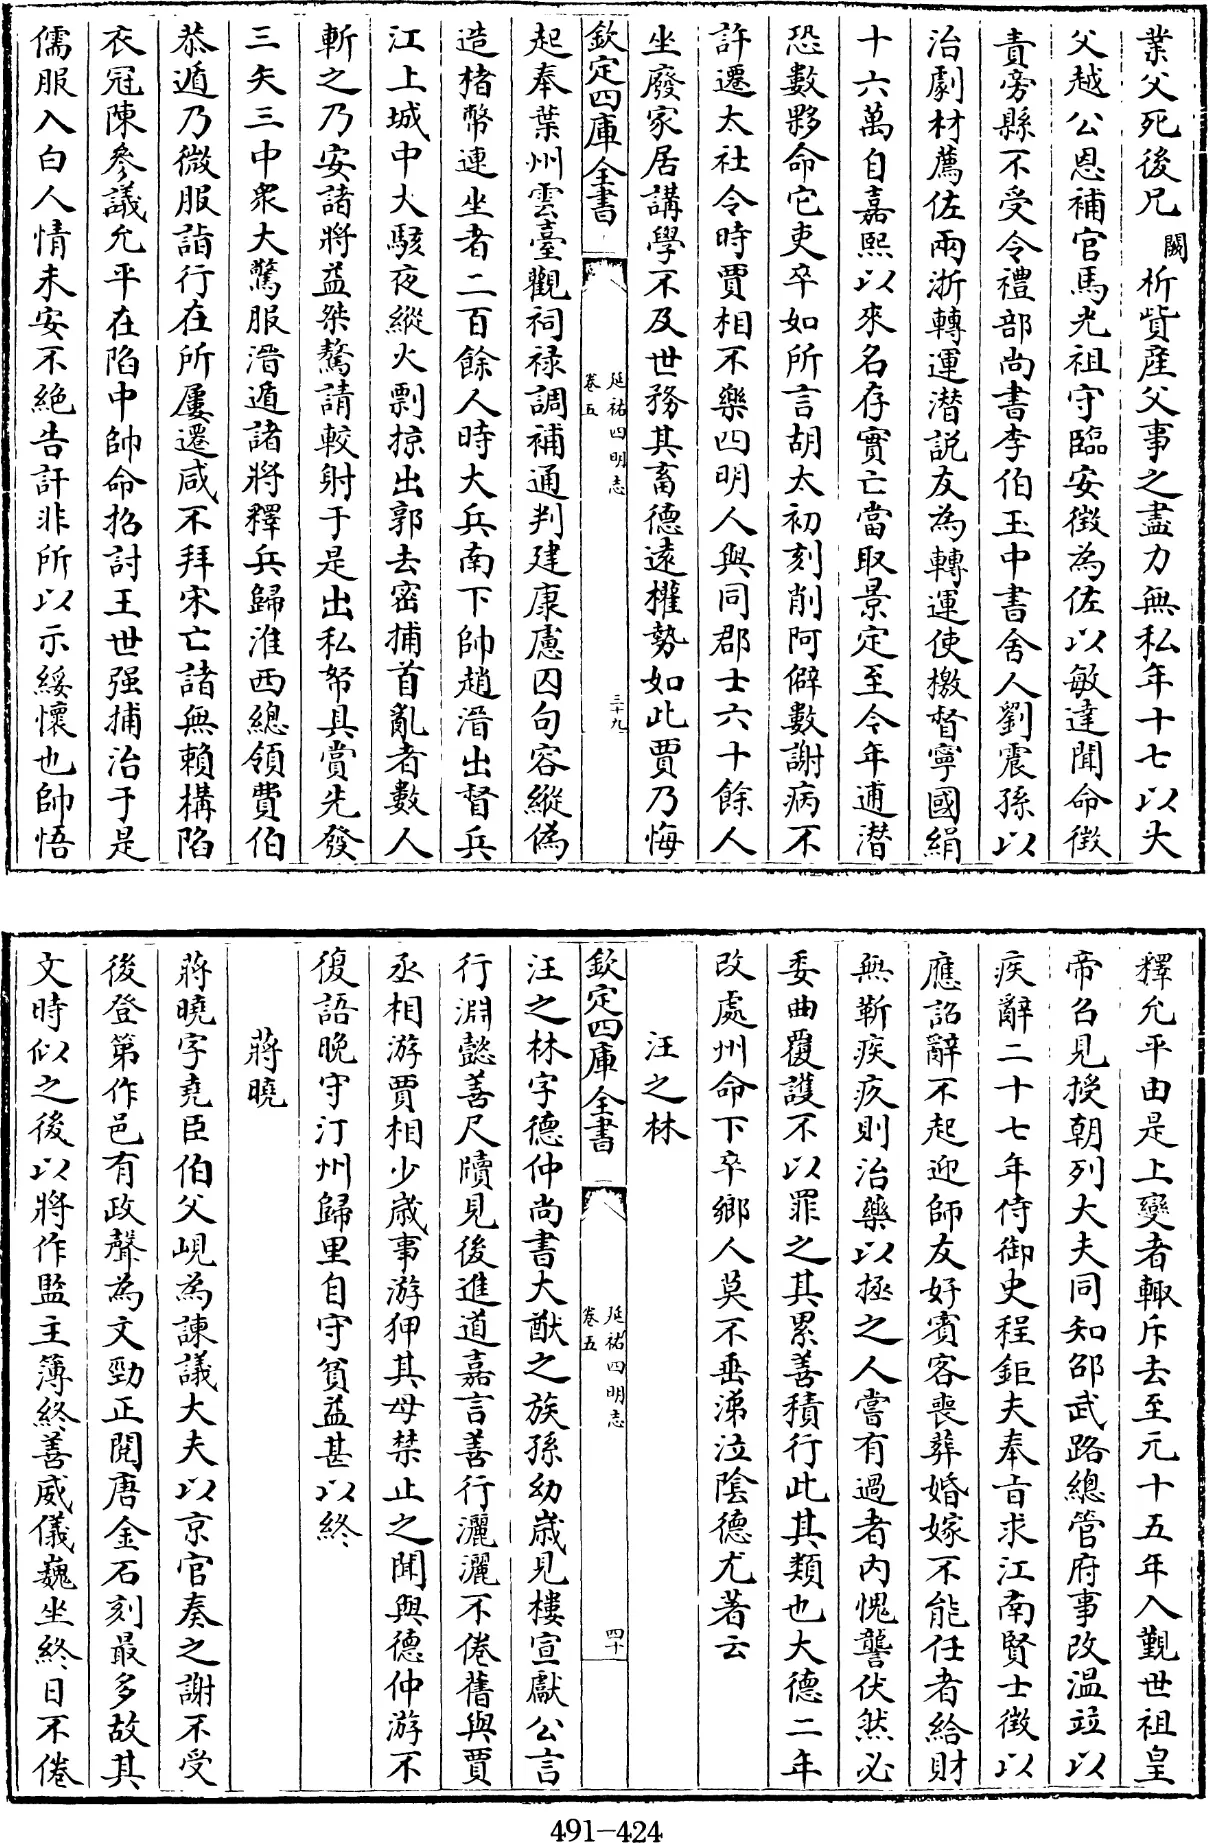 業父死後兄闕析貲産父事之盡力無私年十七以大
父越公恩補官馬光祖守臨安徵為佐以敏達聞命徴
責旁縣不受令禮部尚書李伯玉中書舍人劉震孫以
治劇材薦佐兩浙轉運潜説友為轉運使檄督寧國絹
十六萬自嘉熙以來名存實亡當取景定至今年逋潜
恐數夥命它吏卒如所言胡太初刻削阿僻數謝病不
許遷太社令時賈相不樂四明人與同郡士六十餘人
坐廢家居講學不及世務其畜德逺權勢如此賈乃悔
欽定四庫全書
延祐四明志
卷五
三十九
起奉華州雲臺觀祠禄調補通判建康慮囚句容縱偽
造楮幣連坐者二百餘人時大兵南下帥趙溍出督兵
江上城中大駭夜縱火剽掠出郭去密捕首亂者數人
斬之乃安諸將益桀驁請較射于是出私帑具賞先發
三矢三中衆大驚服溍遁諸將釋兵歸淮西總領費伯
恭遁乃微服詣行在所屢遷咸不拜宋亡諸無賴構陷
衣冠陳參議允平在陷中帥命招討王世强捕治于是
儒服入白人情未安不絶告訐非所以示綏懷也帥悟
釋允平由是上變者輙斥去至元十五年入覲世祖皇
帝召見授朝列大夫同知邵武路總管府事改温竝以
疾辭二十七年侍御史程鉅夫奉旨求江南賢士徴以
應詔辭不起迎師友好賓客喪葬婚嫁不能任者給財
無靳疾疚則治藥以拯之人嘗有過者内愧讋伏然必
委曲覆護不以罪之其累善積行此其類也大德二年
改處州命下卒鄉人莫不垂涕泣隂德尤著云
汪之林
欽定四庫全書
延祐四明志
卷五
四十
汪之林字德仲尚書大猷之族孫幼嵗見樓宣獻公言
行淵懿善尺牘見後進道嘉言善行灑灑不倦舊與賈
丞相游賈相少嵗事游狎其母禁止之聞與德仲游不
復語晩守汀州歸里自守貧益甚以終
蔣曉
蔣曉字堯臣伯父峴為諫議大夫以京官奏之謝不受
後登第作邑有政聲為文勁正閱唐金石刻最多故其
文時似之後以將作監主簿終善威儀巍坐終日不倦
491-424